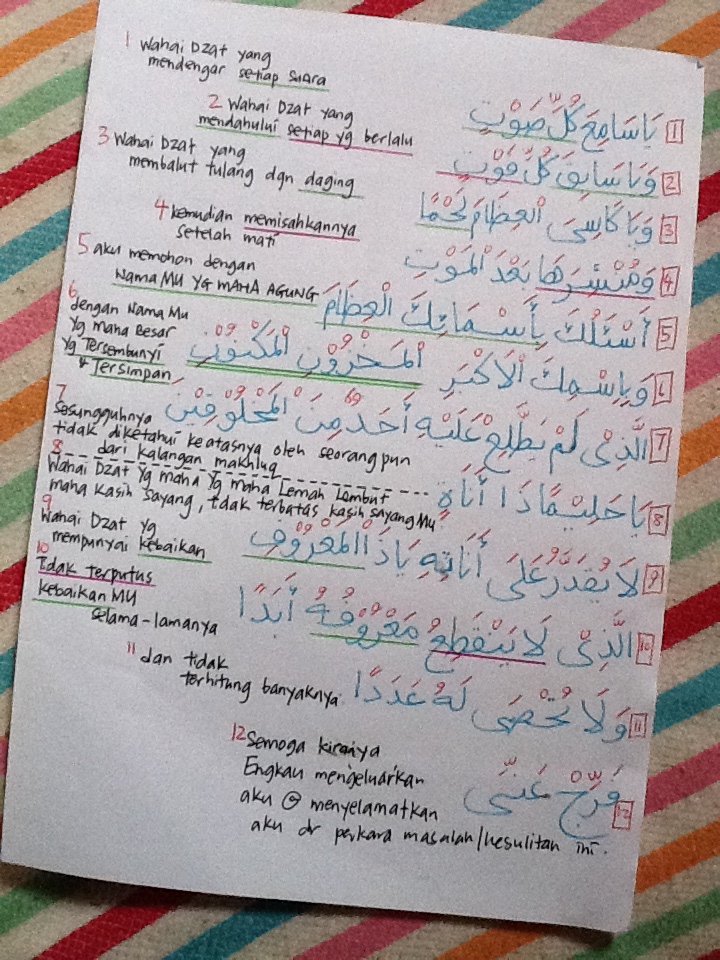 1 Wahai Dzat yang
mendengar setiap suara
يَاسَامِعَ كُلِّ صَوْتٍ 1
2 Wahai Dzat yang
mendahului setiap yg berlalu
وَيَاسَابِقَ كُلِّ فَوْتٍ 2
3 Wahai Dzat yang
membalut tulang dgn daging
وَيَا كَاسِىَ الْعِظَامَ لَحْمًا 3
4 kemudian memisahkannya
setelah mati
وَمُنْشِرَهَا بَعْدَ الْمَوْتِ 4
5 aku memohon dengan
Nama MU YG MAHA AGUNG
أَسْئَلُكَ بِأَسْمَائِكَ الْعِظَامَ 5
6 dengan Nama Mu
Yg maha Besar
Yg Tersembunyi
& Tersimpan
وَبِاِسْمِكَ الْاَكْبَرِ الْمَخْزُوْنِ الْمَكْنُوْنِ 6
7 Sesungguhnya
tidak diketahui ke atasnya oleh seorang pun
dari kalangan makhluq
الَّذِىْ لَمْ يَطَّلِعْ عَلَيْهِ أَحَدٌ مِنَ الْمَخْلُوْقِيْنَ 7
8 Wahai Dzat Yg maha Yg maha Lemah Lembut
maha Kasih Sayang, tidak terbatas kasih sayang Mu
يَا حَلِيْمًاذَا أَنَاةٍ 8
9 Wahai Dzat Yg
mempunyai kebaikan
لَا يُقْدَرُ عَلَى أَنَاتِهِ يَاذَاالْمَعْرُوْفِ 9
10 Tidak terputus
kebaikan MU
selama-lamanya
الَّذِىْ لَا يَنْقَطِعُ مَعْرُوْفُهُ أَبَدًا 10
11 dan tidak
terhitung banyaknya
وَلَا تُحْصَى لَهُ عَدَدًا 11
12 Semoga kiranya
Engkau mengeluarkan
aku @ menyelamatkan
aku dr perkara masalah/kesulitan ini.
فَرِّجْ عَنِّى 12